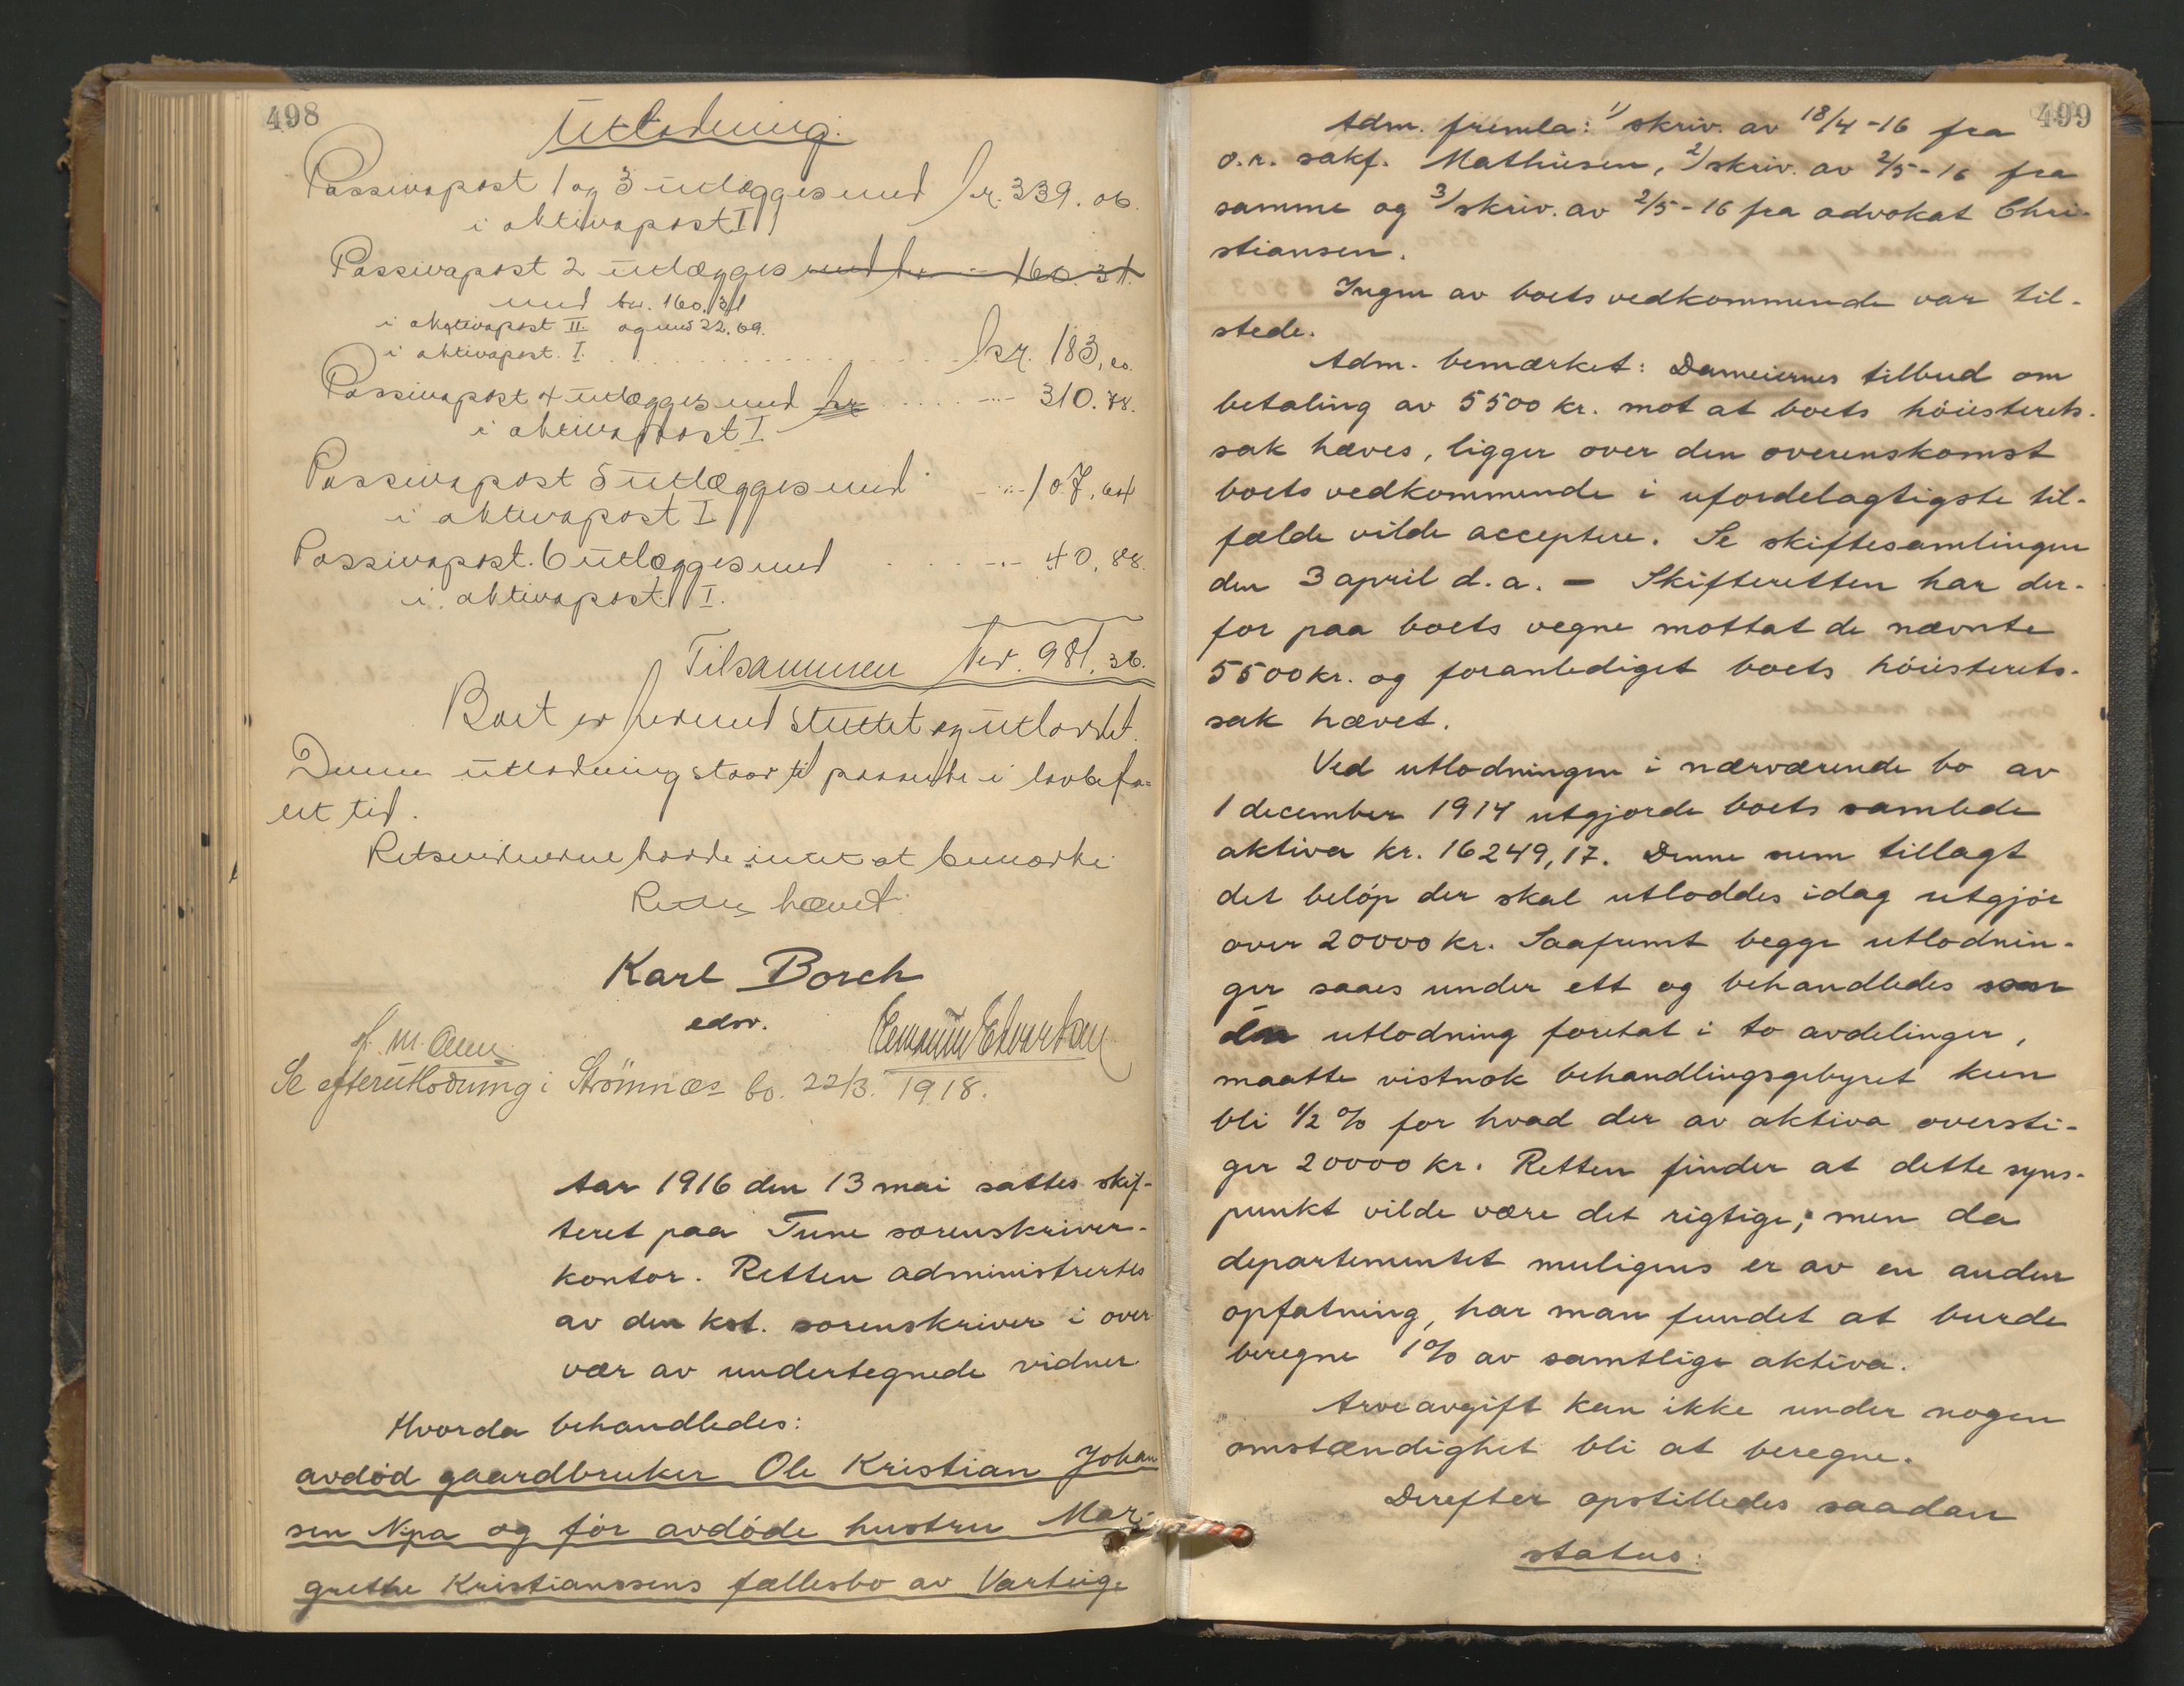 498
Utlodning.
Passivapost 1 og 3 utlægges med kr. 339.06.
i aktivapost I
Passivapost 2 utlægges med kr. -- 160.31.
med kr. 160.31
i aktivapost II og med 22.69.
i aktivapost I. kr. 183,00.
Passivapost 4 utlægges med kr -"- 310.78.
i aktivapost I
Passivapost 5 utlægges med -"- 107,64
i aktivapost I
Passivapost. 6 utlægges med -"- 40,88.
i aktivapost I.
Tilsammen kr. 981.36.
Boet er hermed sluttet og utloddet.
Denne utlodning staar til paaanke i lovbefa-
let tid.
Retsvidnerne hadde intet at bemærke
Retten hævet.
Karl Borch
edsv.
Se efterutlodning i Strömnæs bo. 22/3. 1918.
Aar 1916 den 13 mai sattes skif-
teret paa Tune sorenskriver-
kontor. Retten administrertes
av den kst. sorenskriver i over
vær av undertegnede vidner
Hvorda behandledes:
avdöd gaardbruker Ole Kristian Johan
sen Npa og för avdöde hustru Mar-
grethe Kristianssens fællesbo av Varteig.
499
Adm. fremla: 1/ skriv. av 18/4-16 fra
o.r. sakf. Mathiesen, 2/ skriv. av 2/5-16 fra
samme og 3/ skriv. av 2/5-16 fra advokat Chri-
stiansen.
Ingen av boets vedkommende var til-
stede.
Adm. bemærket: Dameiernes tilbud om
betaling av 5500 kr. mot at boets höiesterets-
sak hæves, ligger over den overenskomst
boets vedkommende i ufordelagtigste til-
fælde vilde acceptere. Se skiftesamlingen
den 3 april d.a. – Skifteretten har der-
for paa boets vegne mottat de nævnte
5500 kr. og foranlediget boets höiesterets-
sak hævet.
Ved utlodningen i nærværende bo av
1 december 1914 utgjorde boets samlede
aktiver kr. 16249,17. Denne sum tillagt
det belöp der skal utloddes idag utgjör
over 20000 kr. Saafremt begge utlodnin-
ger saaes under ett og behandledes som
én utlodning foretat i to avdelinger,
maatte vistnok behandlingsgebyret kun
bli 1/2 % for hvad der av aktiva oversti-
ger 20000 kr. Retten finder at dette syns-
punkt vilde være det rigtige; men da
departementet muligens er av en anden
opfatning, har man fundet at burde
beregne 1% av samtlige aktiva.
Arveavgift kan ikke under nogen
omstændighet bli at beregne.
Derefter opstilledes saadan
status: